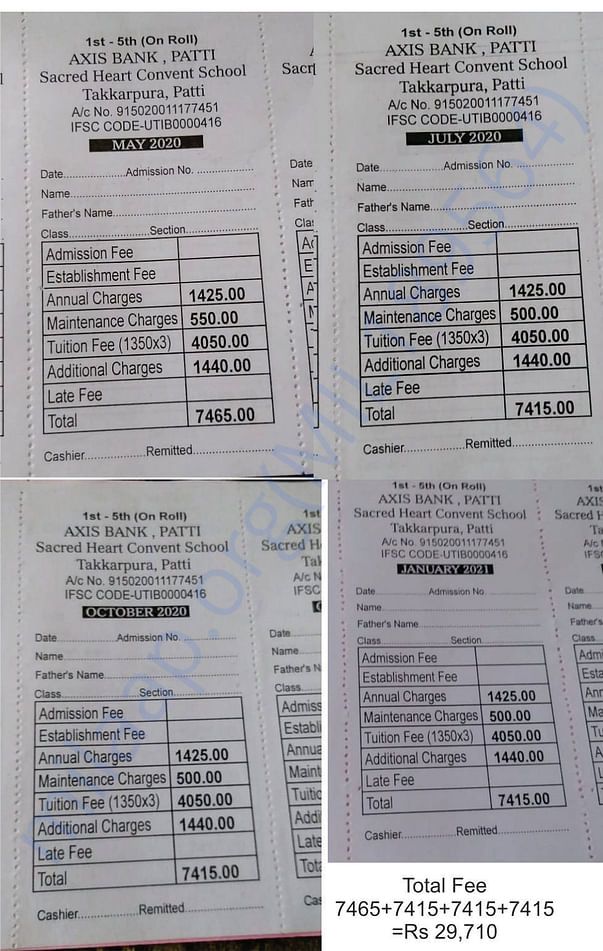 1st - 5th (On Roll)
AXIS BANK , PATTI
Sacred Heart Convent School
Takkarpura, Patti
A/c No. 915020011177451
IFSC CODE-UTIB0000416
MAY 2020
Date....................Admission No. .................
Name.....................................................
Father's Name.........................................
Class..........................Section......................
Admission Fee
Establishment Fee
Annual Charges 1425.00
Maintenance Charges 550.00
Tuition Fee (1350x3) 4050.00
Additional Charges 1440.00
Late Fee
Total 7465.00
Cashier...................Remitted........................
1st - 5th (On Roll)
AXIS BANK , PATTI
Sacred Heart Convent School
Takkarpura, Patti
A/c No. 915020011177451
IFSC CODE-UTIB0000416
JULY 2020
Date....................Admission No. .................
Name.....................................................
Father's Name.........................................
Class..........................Section......................
Admission Fee
Establishment Fee
Annual Charges 1425.00
Maintenance Charges 500.00
Tuition Fee (1350x3) 4050.00
Additional Charges 1440.00
Late Fee
Total 7415.00
Cashier...................Remitted........................
1st - 5th (On Roll)
AXIS BANK , PATTI
Sacred Heart Convent School
Takkarpura, Patti
A/c No. 915020011177451
IFSC CODE-UTIB0000416
OCTOBER 2020
Date....................Admission No. .................
Name.....................................................
Father's Name.........................................
Class..........................Section......................
Admission Fee
Establishment Fee
Annual Charges 1425.00
Maintenance Charges 500.00
Tuition Fee (1350x3) 4050.00
Additional Charges 1440.00
Late Fee
Total 7415.00
Cashier...................Remitted........................
1st - 5th (On Roll)
AXIS BANK , PATTI
Sacred Heart Convent School
Takkarpura, Patti
A/c No. 915020011177451
IFSC CODE-UTIB0000416
JANUARY 2021
Date....................Admission No. .................
Name.....................................................
Father's Name.........................................
Class..........................Section......................
Admission Fee
Establishment Fee
Annual Charges 1425.00
Maintenance Charges 500.00
Tuition Fee (1350x3) 4050.00
Additional Charges 1440.00
Late Fee
Total 7415.00
Cashier...................Remitted........................
Total Fee
7465+7415+7415+7415
=Rs 29,710